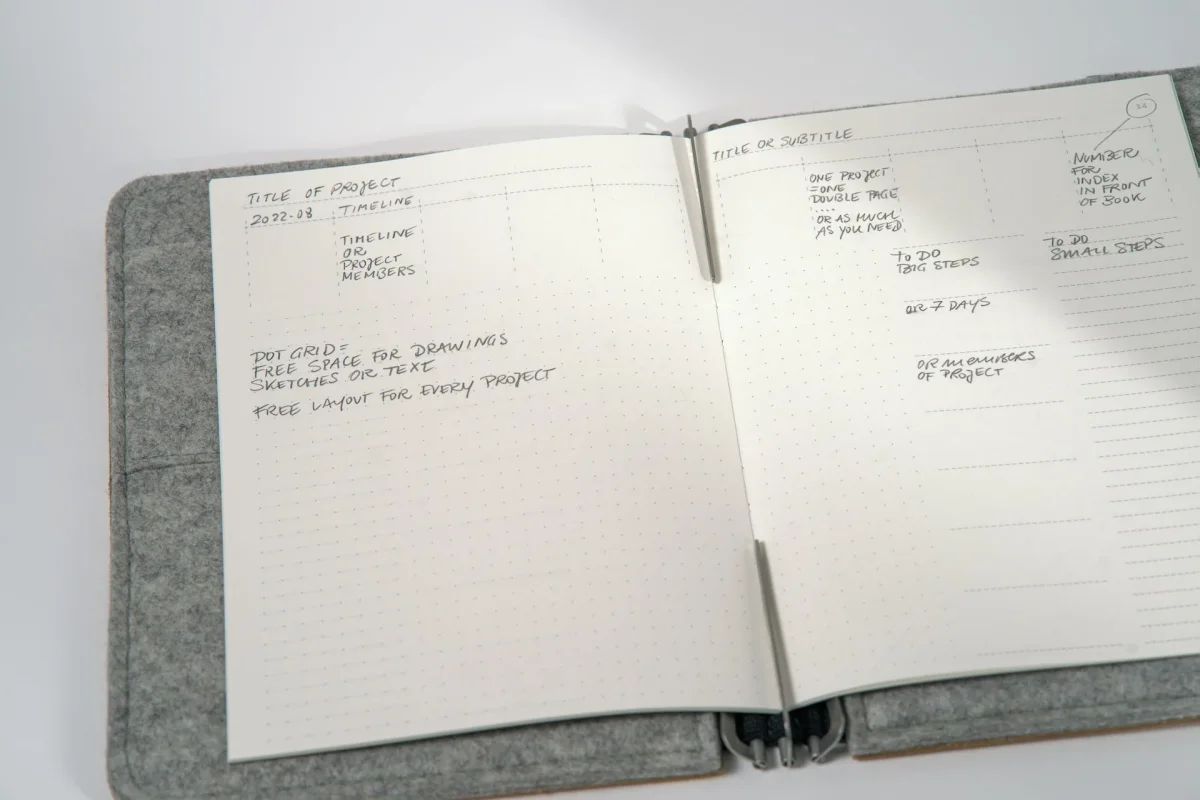 TITLE OF PROJECT
2022-08 TIMELINE
TIMELINE
OR
PROJECT
MEMBERS
DOT GRID =
FREE SPACE FOR DRAWINGS
SKETCHES OR TEXT
FREE LAYOUT FOR EVERY PROJECT
TITLE OR SUBTITLE
34
ONE PROJECT
= ONE
DOUBLE PAGE
....
OR AS MUCH
AS YOU NEED
NUMBER
FOR
INDEX
IN FRONT
OF BOOK
TO DO
BIG STEPS
OR 7 DAYS
OR MEMBERS
OF PROJECT
TO DO
SMALL STEPS